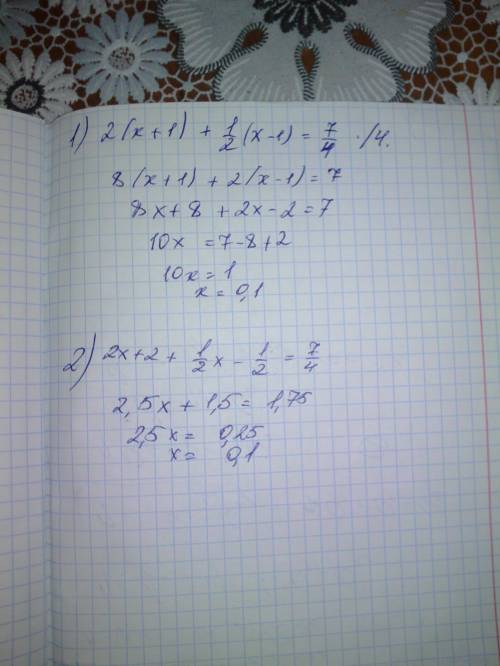 1) 2(x+1) + 1/2 (x-1) = 7/4 ·/4.
8(x+1) + 2(x-1) = 7
8x + 8 + 2x - 2 = 7
10x = 7-8+2
10x = 1
x = 0,1
2) 2x+2 + 1/2 x - 1/2 = 7/4
2,5x + 1,5 = 1,75
2,5x = 0,25
x = 0,1